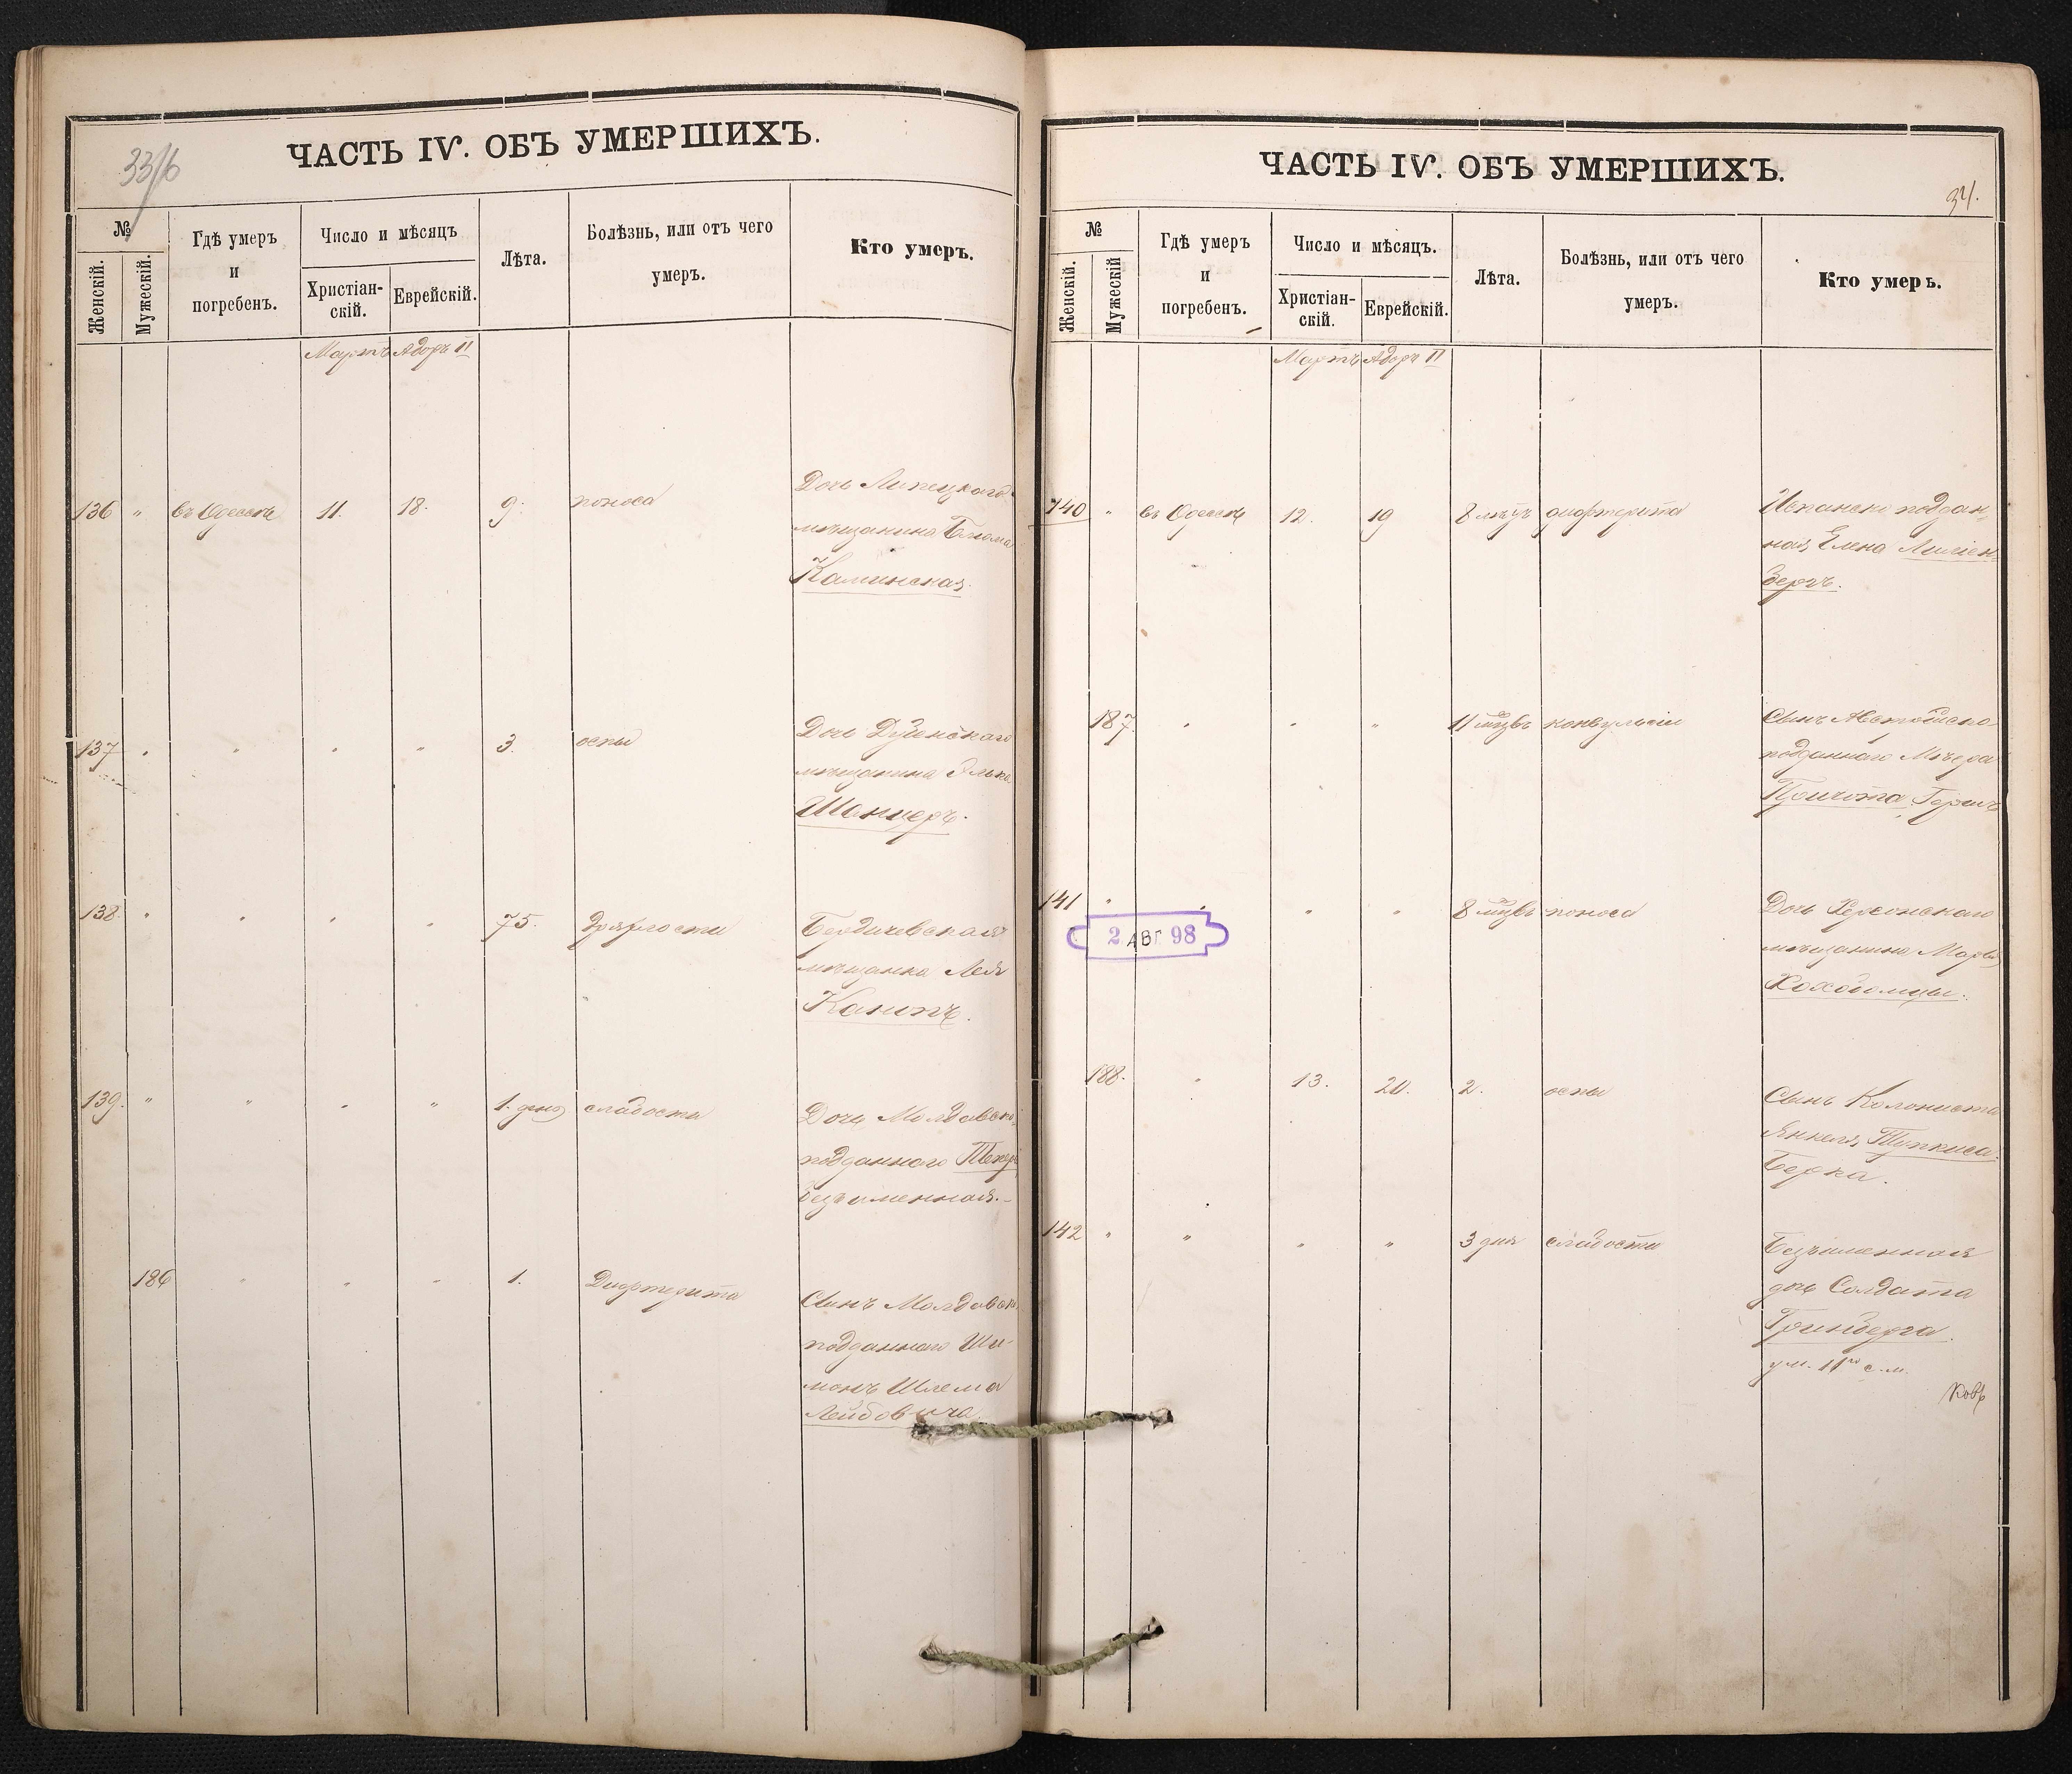 ЧАСТЬ IV. ОБЪ УМЕРШИХЪ.
33/6
№
Женскій.
Мужескій.
Гдѣ умеръ
и
погребенъ.
Число и мѣсяцъ
Христіан-
скій.
Еврейскій.
Лѣта.
Болѣзнь, или отъ чего
умеръ.
Кто умеръ.
Мартъ Адаръ II
136 " въ Одессѣ 11. 18. 9. поноса
Дочь Липецкаго
мѣщанина Блюма
Каминская.
137 " " " " 3. оспы
Дочь Дубенскаго
мѣщанина
138. " " " " 75. дряхлости
Бердичевская
мѣщанка Лея
139. " " " " 1. день слабости
Дочь Молдавск.
подданнаго
безъименная.
186 " " " 1. Дифтерита
Сынъ Молдавск.
подданнаго Ши-
монъ Шлема
Лейбовича
ЧАСТЬ IV. ОБЪ УМЕРШИХЪ.
34.
№
Женскій.
Мужескій
Гдѣ умеръ
и
погребенъ.
Число и мѣсяцъ.
Христіан-
скій.
Еврейскій.
Лѣта.
Болѣзнь, или отъ чего
умеръ.
Кто умеръ.
Мартъ Адаръ II
140 " въ Одессѣ 12. 19 8 мѣц. дифтерита
Испанско поддан-
ная Елена Лиліен-
бергъ.
187. " " " 11 мѣц. конвульсіи
Сынъ Австрійско
подданнаго
141 " " " " 8 мѣц. поноса
Дочь Херсонскаго
мѣщанина
2 АВГ 98
188. " 13. 20. 2. оспы
Сынъ Колониста
Янкеля
Берка.
142 " " " " 3 дня слабости
Безъименная
дочь Солдата
Гринберга.
ум. 11го с.м.